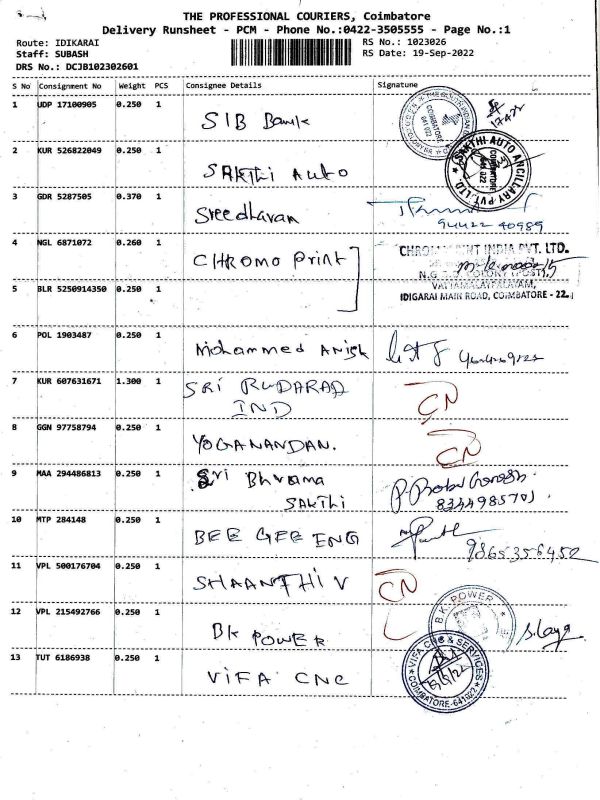 THE PROFESSIONAL COURIERS, Coimbatore
Delivery Runsheet - PCM - Phone No.:0422-3505555 - Page No.:1
Route: IDIKARAI RS No.: 1023026
Staff: SUBASH RS Date: 19-Sep-2022
DRS No.: DCJB102302601
S No Consignment No Weight PCS Consignee Details Signature
1 UDP 17100905 0.250 1 SIB Bank
COIMBATORE 641 022
2 KUR 526822049 0.250 1 SAKTHI AUTO
SAKTHI AUTO ANCILLARY PVT.LTD. COIMBATORE 641 022
3 GDR 5287505 0.370 1 Sreedharan
94422 40989
4 NGL 6871072 0.260 1 CHROMO Print
INDIA PVT. LTD.
5 BLR 5250914350 0.250 1
IDIGARAI MAIN ROAD, COIMBATORE - 22.
6 POL 1903487 0.250 1 Mohammed Anish
7 KUR 607631671 1.300 1 SRI RUDARAD
IND
CN
8 GGN 97758794 0.250 1 YOGANANDAN.
CN
9 MAA 294486813 0.250 1 Sri Bhrama
SAKTHI
P. Babu Ganesh
8344985701
10 MTP 284148 0.250 1 BEE GEE ENG
9865356452
11 VPL 500176704 0.250 1 SHAANTHI V
CN
12 VPL 215492766 0.250 1 BK POWER
BK-POWER
13 TUT 6186938 0.250 1 VIFA CNC
VIFA CNC & SERVICES COIMBATORE-641022